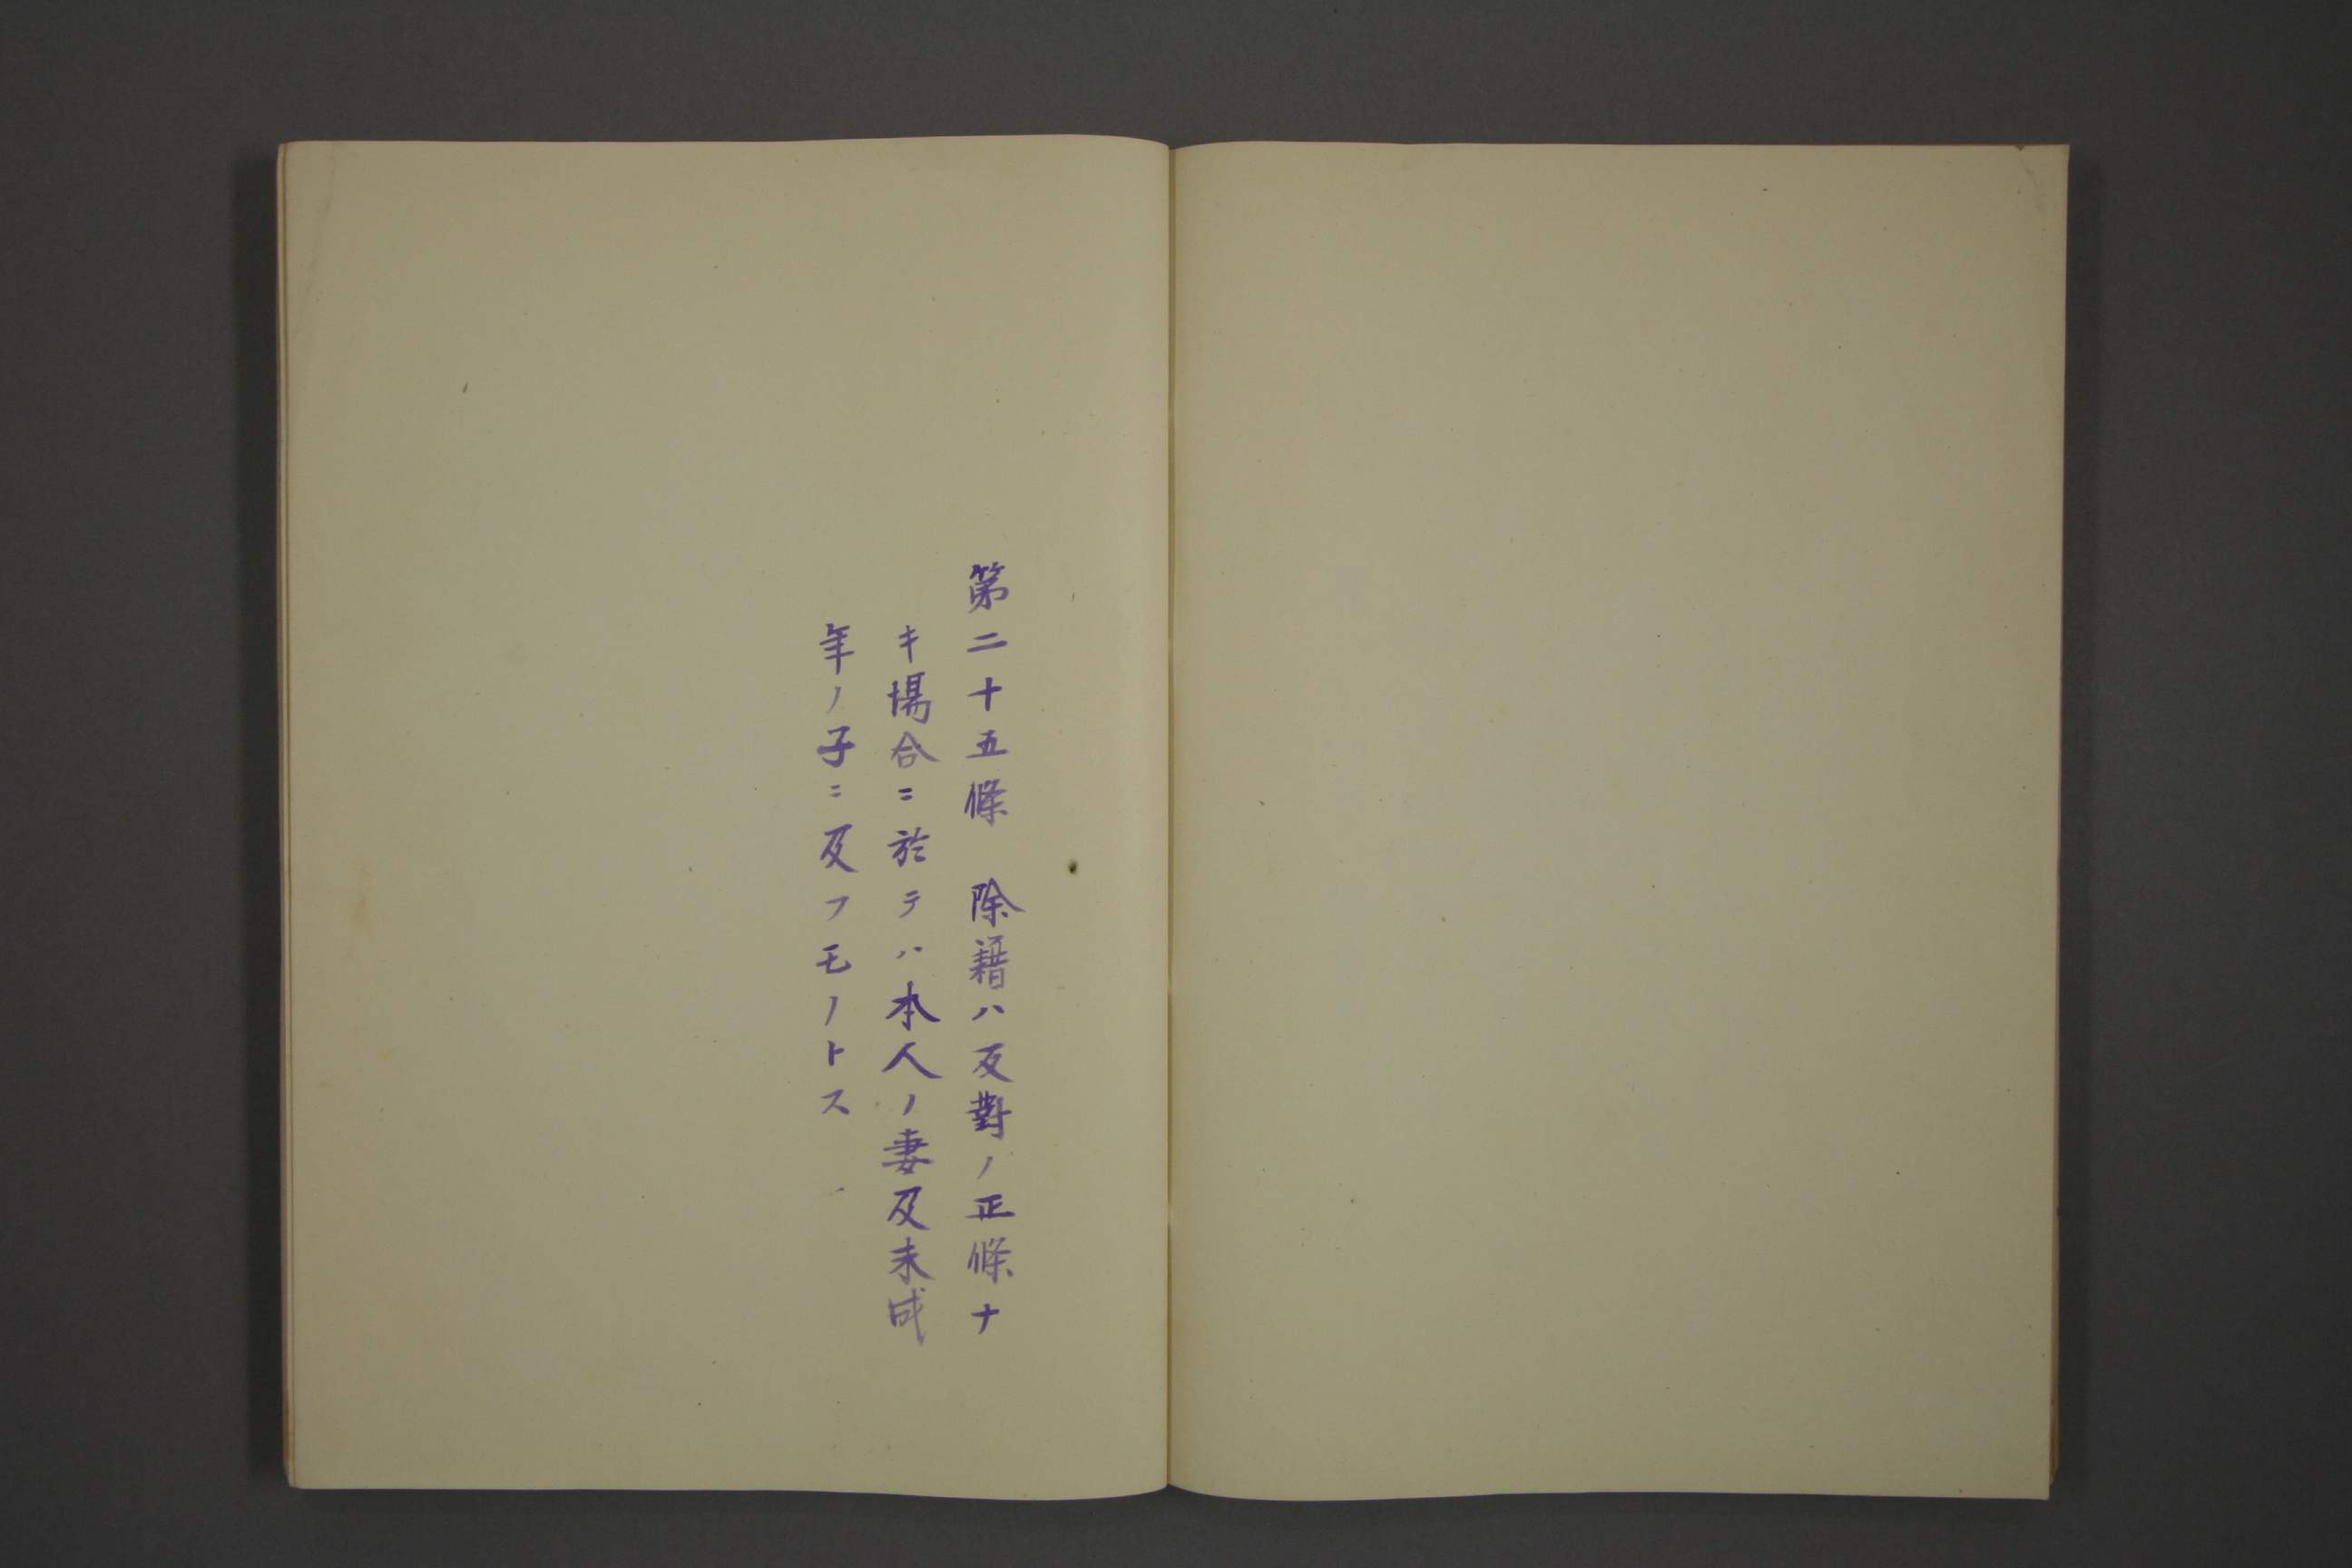 第二十五條　除籍ハ反對ノ正條ナ
キ場合ニ於テハ本人ノ妻及未成
年ノ子ニ及フモノトス